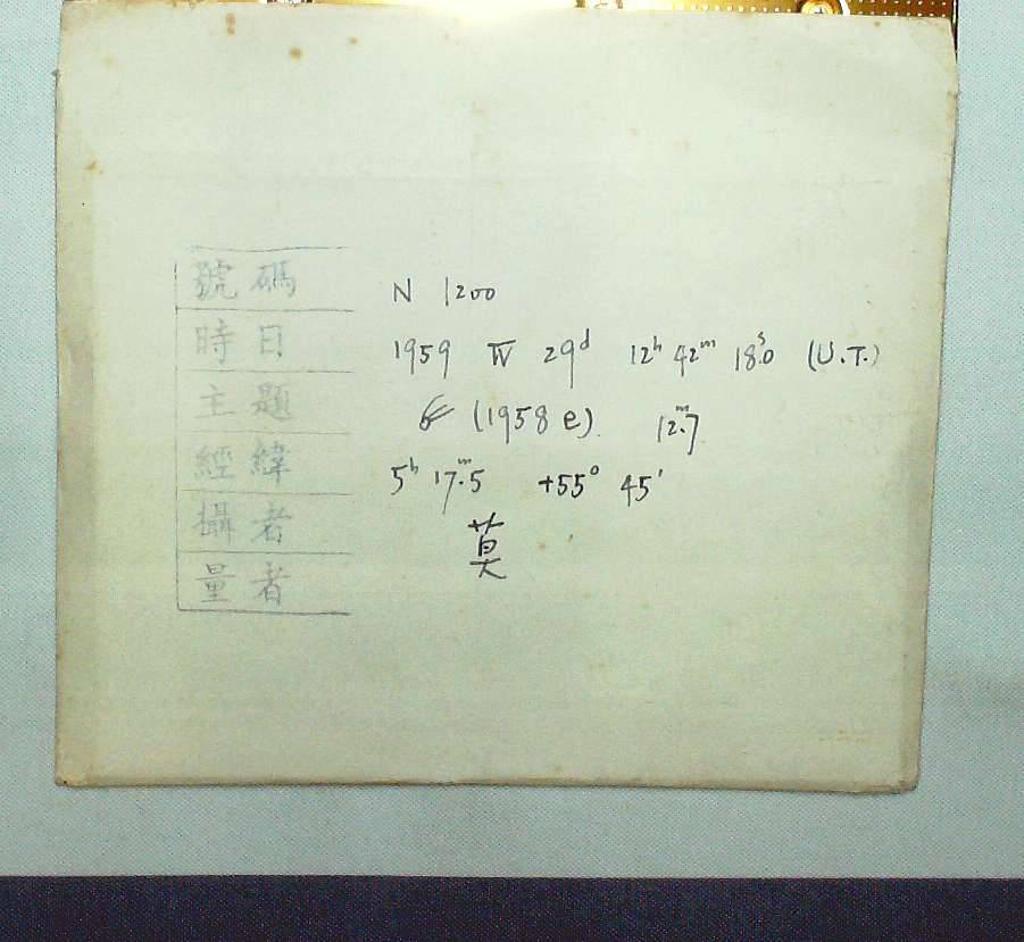 號碼 N 1200
時日 1959 IV 29ᵈ 12ʰ 42ᵐ 18ˢ.0 (U.T.)
主題 ☄ (1958 e) 12ᵐ.7
經緯 5ʰ 17ᵐ.5 +55° 45'
攝者 莫
量者